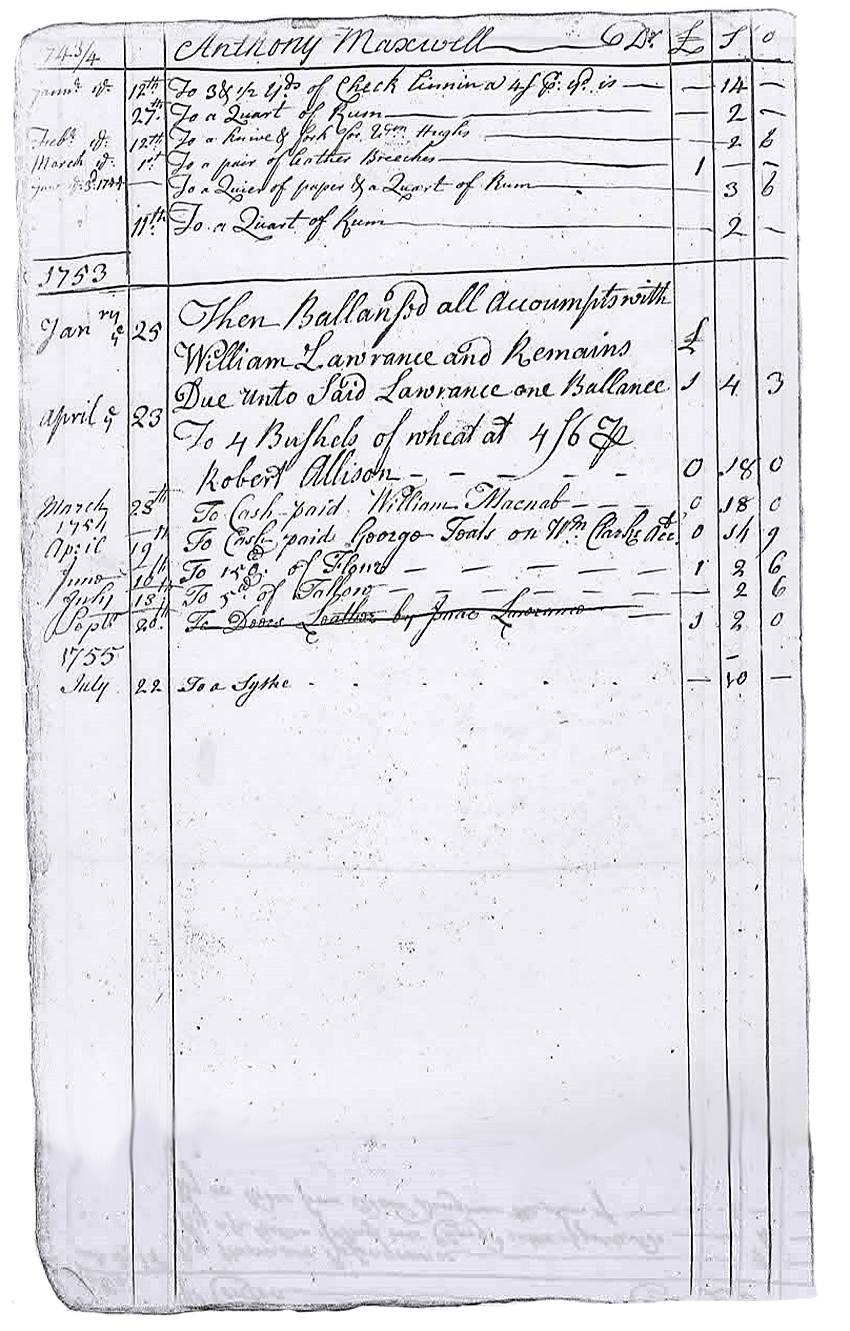 743/4 Anthony Maxwell Dr £ S D
12th To 3 & 1/2 yds of Check Linnin a 4s pr. yd. is — — 14 —
27th To a Quart of Rum — — 2 —
Febr. 12th To a Knive & fork for Hughs — 2 6
March 1st To a pair of leather Breeches 1 — —
1744 — To a Quier of paper & a Quart of Rum 3 6
11th To a Quart of Rum — 2 —
1753
Janry ye 25 Then Ballansed all Accoumpts with
William Lawrance and Remains £
Due unto Said Lawrance one Ballance 1 4 3
April ye 23 To 4 Bushels of wheat at 4s6 P
Robert Allison 0 18 0
March 28th To Cash paid William Macnab 0 18 0
1754
April 19th To Cash paid George Toals on Wm. Clarks Act. 0 14 9
June 10th To of Flour 1 2 6
July 18th To 5 of Tallow — 2 6
Septr 20th To Doors Leather by Isaac Lawrance 1 2 0
1755
July 22 To a Sythe — 10 —